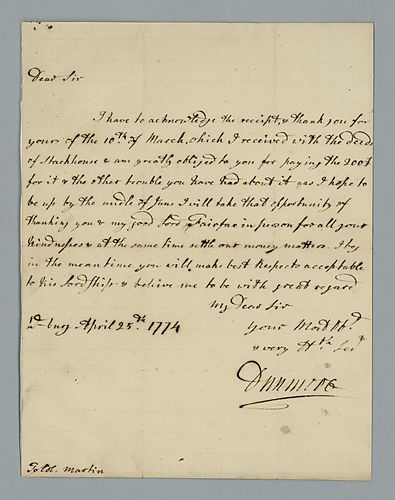 Dear Sir
I have to acknowledge the receipt, & thank you for
yours of the 10th of March, which I received with the deeds
of Stackhouse & am greatly obliged to you for paying the 200£
for it & the other trouble you have had about it, as I hope to
be up by the midle of June I will take that opportunity of
thanking you & my good Lord Fairfax in person for all your
kindnesses & at the same time settle our money matters. I beg
in the mean time you will make best Respects acceptable
to his Lordship & believe me to be with great regard
My Dear Sir
April 25th 1774
your Most Obd
& very Hble Ser
Dunmore
To Col. Martin